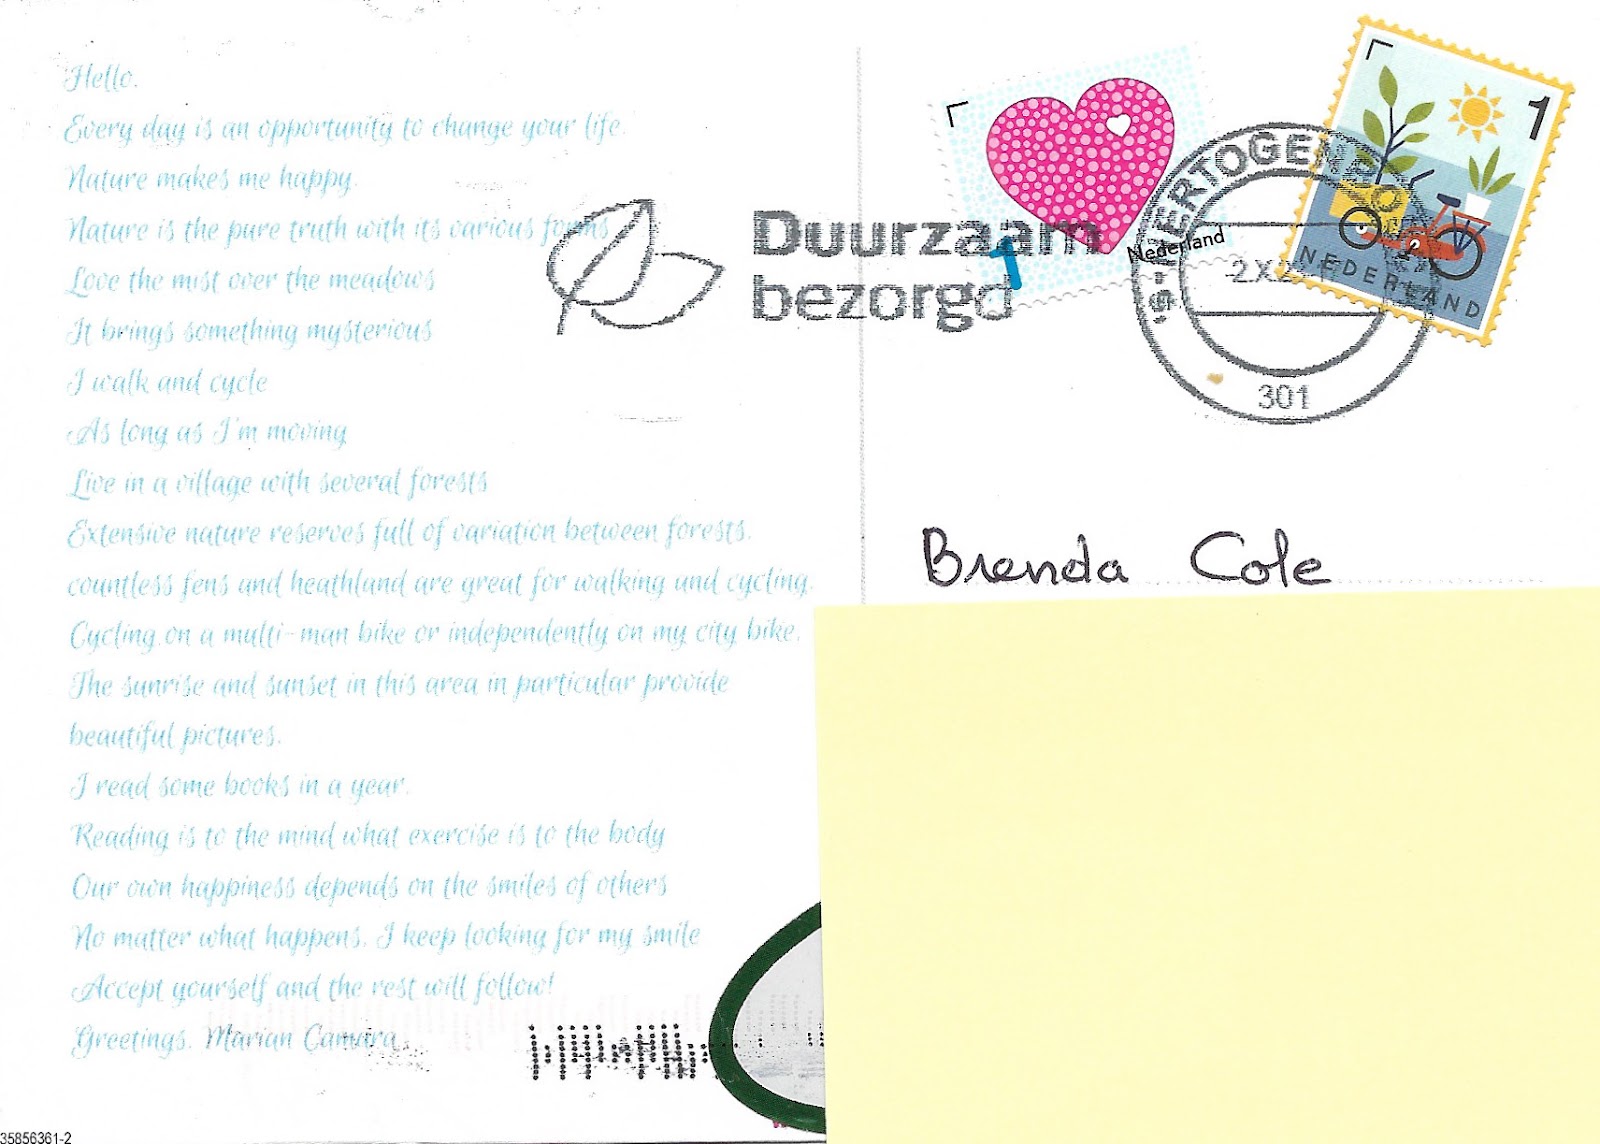 Hello.
Every day is an opportunity to change your life.
Nature makes me happy.
Nature is the pure truth with its various forms
Love the mist over the meadows
It brings something mysterious
I walk and cycle
As long as I'm moving
Live in a village with several forests
Extensive nature reserves full of variation between forests,
countless fens and heathland are great for walking und cycling.
Cycling on a multi-man bike or independently on my city bike.
The sunrise and sunset in this area in particular provide
beautiful pictures.
I read some books in a year.
Reading is to the mind what exercise is to the body
Our own happiness depends on the smiles of others
No matter what happens, I keep looking for my smile
Accept yourself and the rest will follow!
Greetings, Marian Camara
35856361-2
Duurzaam
bezorgd
1
Nederland
1
NEDERLAND
301
Brenda Cole